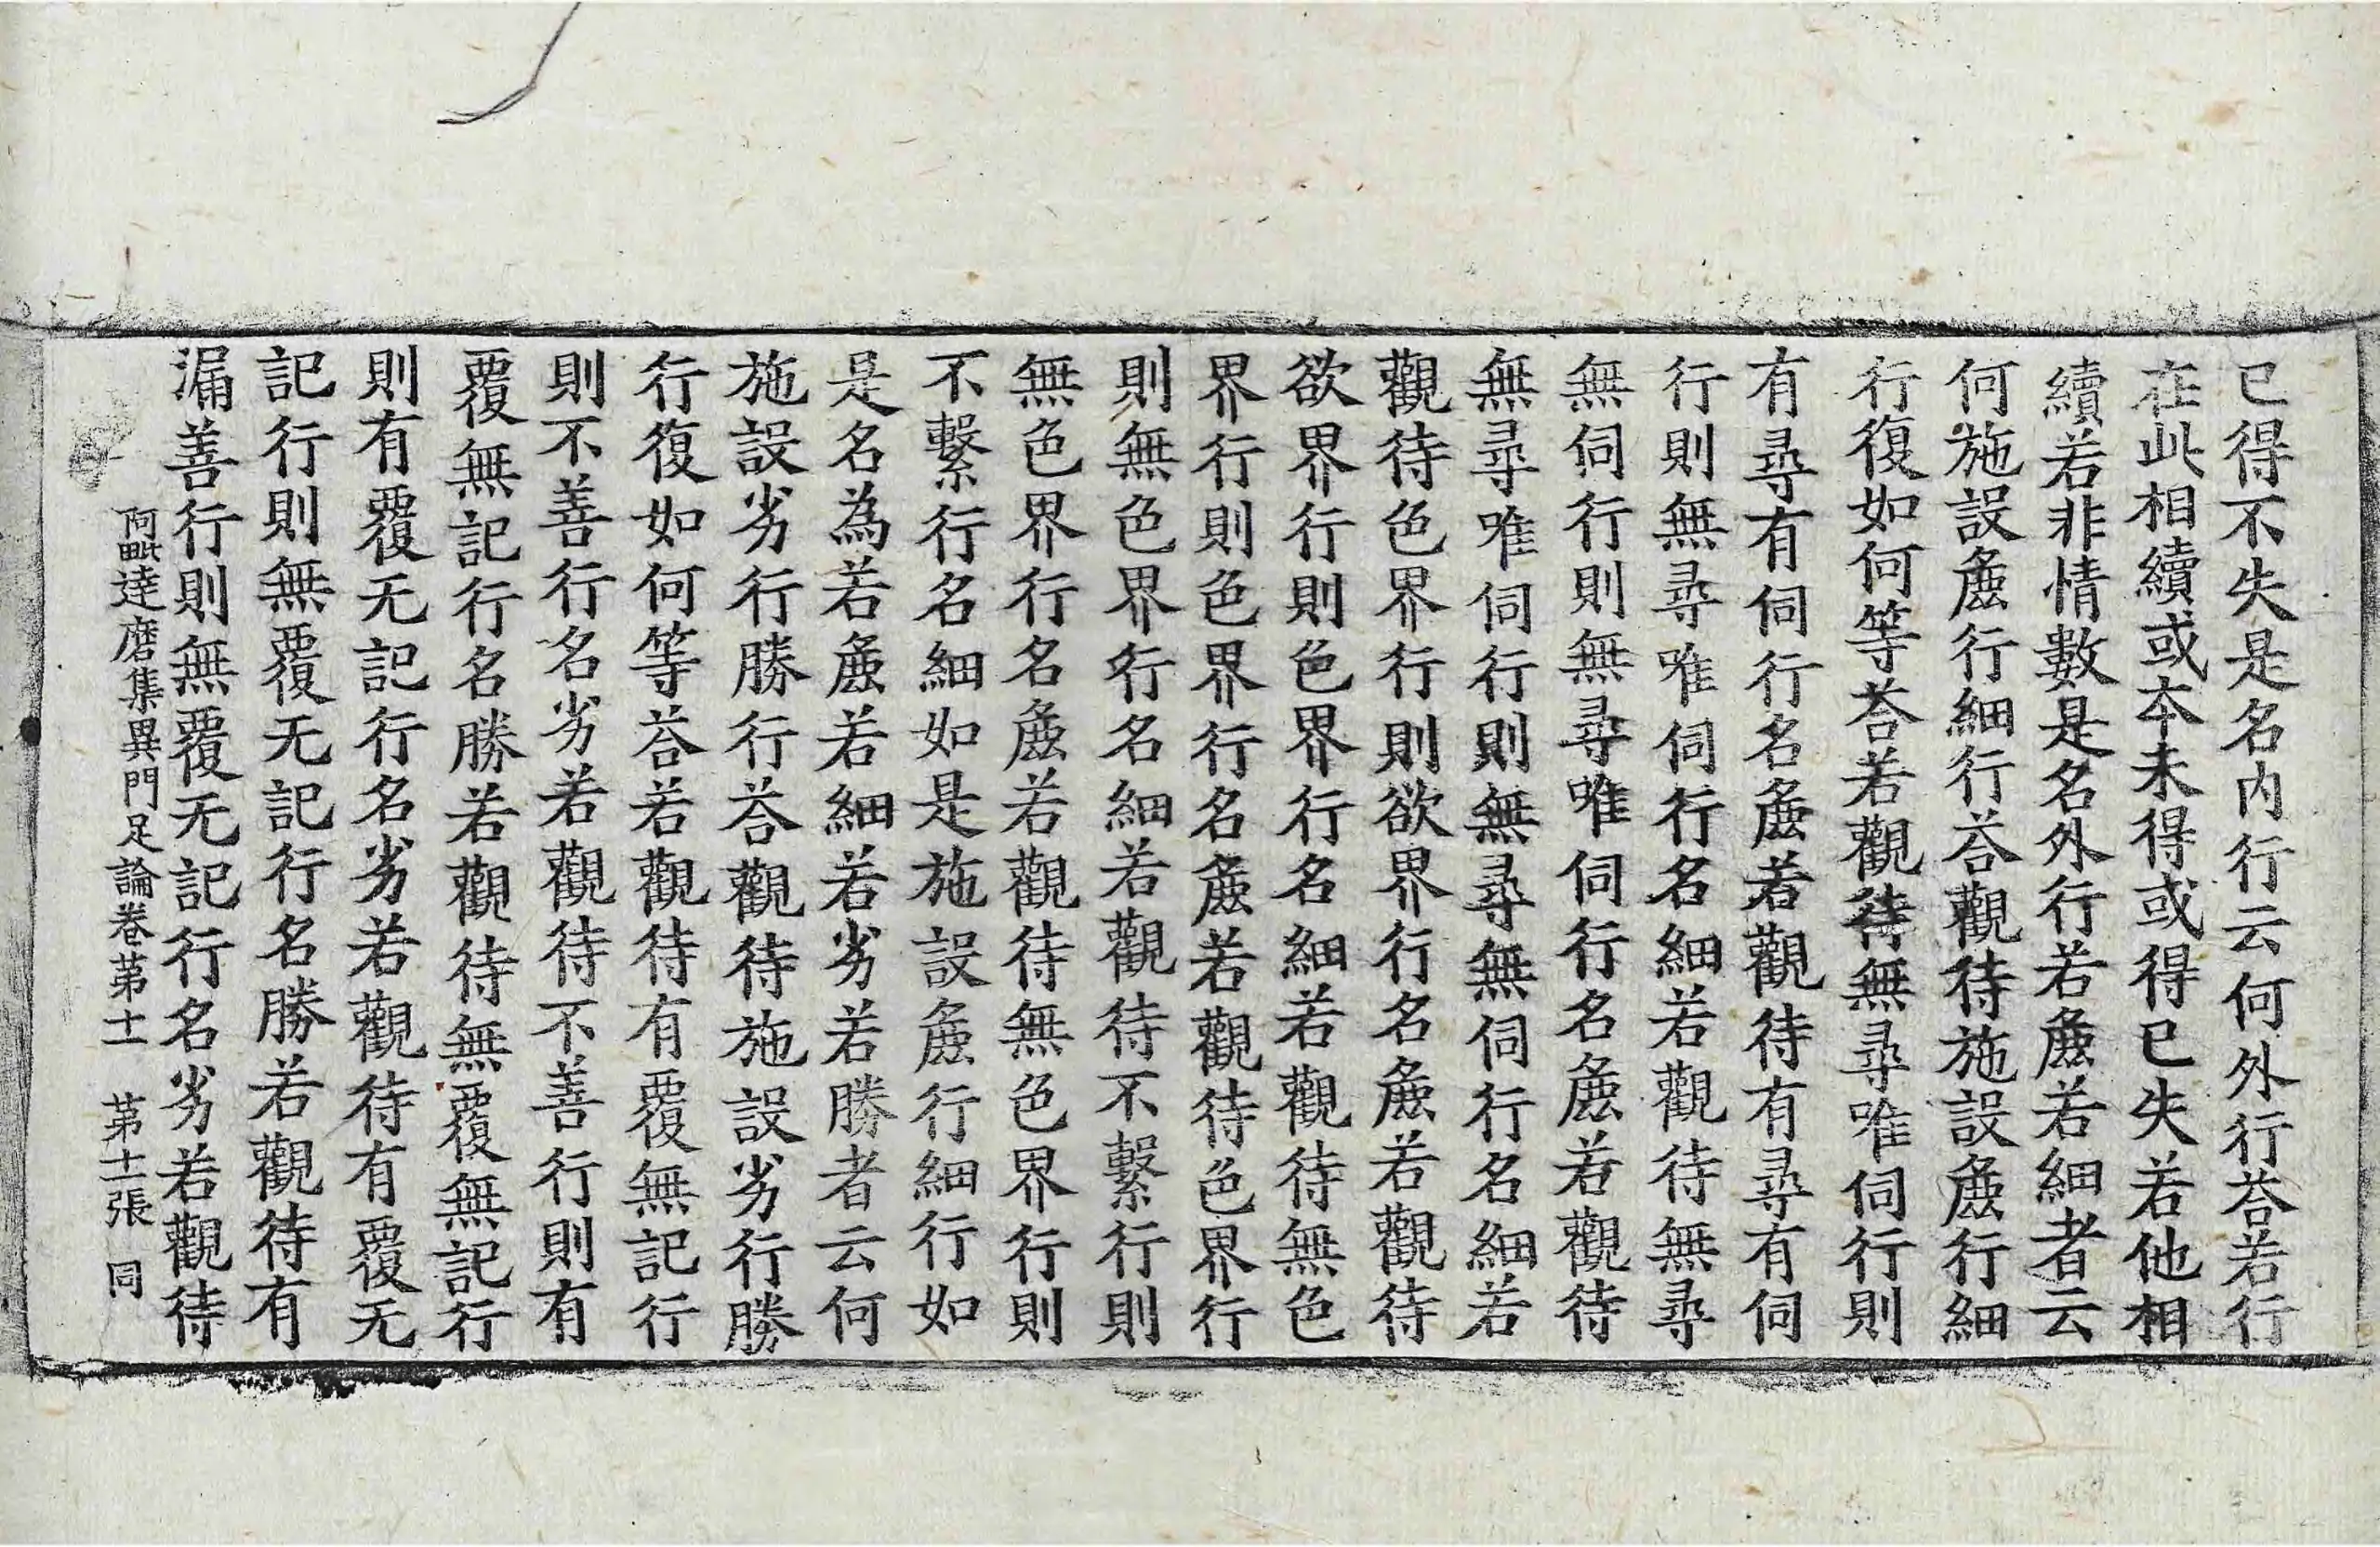 已得不失是名内行云何外行荅若行
在此相續或夲未得或得已失若他相
續若非情數是名外行若麁若細者云
何施設麁行細行荅觀待施設麁行細
行復如何等荅若觀待無尋唯伺行則
有尋有伺行名麁若觀待有尋有伺
行則無尋唯伺行名細若觀待無尋
無伺行則無尋唯伺行名麁若觀待
無尋唯伺行則無尋無伺行名細若
觀待色界行則欲界行名麁若觀待
欲界行則色界行名細若觀待無色
界行則色界行名麁若觀待色界行
則無色界行名細若觀待不繫行則
無色界行名麁若觀待無色界行則
不繫行名細如是施設麁行細行如
是名為若麁若細若劣若勝者云何
施設劣行勝行荅觀待施設劣行勝
行復如何等荅若觀待有覆無記行
則不善行名劣若觀待不善行則有
覆無記行名勝若觀待無覆無記行
則有覆无記行名劣若觀待有覆无
記行則無覆无記行名勝若觀待有
漏善行則無覆无記行名劣若觀待
阿毗達磨集異門足論卷苐十一 苐十二張 同